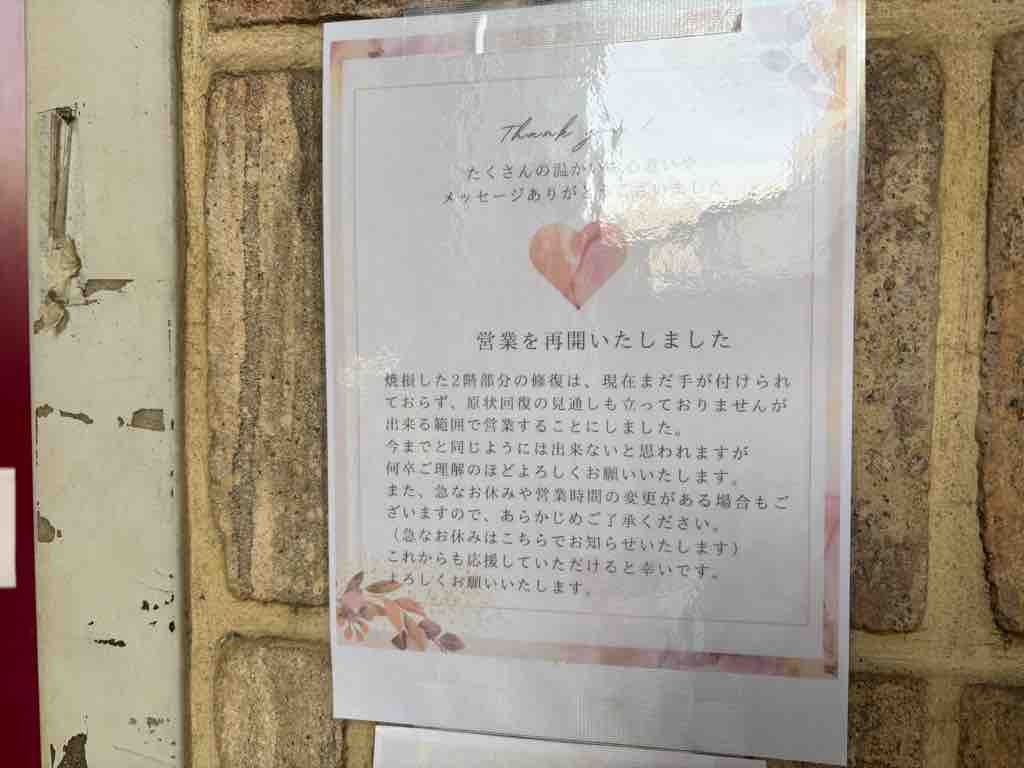 Thank you
たくさんの温かいお心遣いや
メッセージありがとうございました
営業を再開いたしました
焼損した2階部分の修復は、現在まだ手が付けられ
ておらず、原状回復の見通しも立っておりませんが
出来る範囲で営業することにしました。
今までと同じようには出来ないと思われますが
何卒ご理解のほどよろしくお願いいたします。
また、急なお休みや営業時間の変更がある場合もご
ざいますので、あらかじめご了承ください。
（急なお休みはこちらでお知らせいたします）
これからも応援していただけると幸いです。
よろしくお願いいたします。